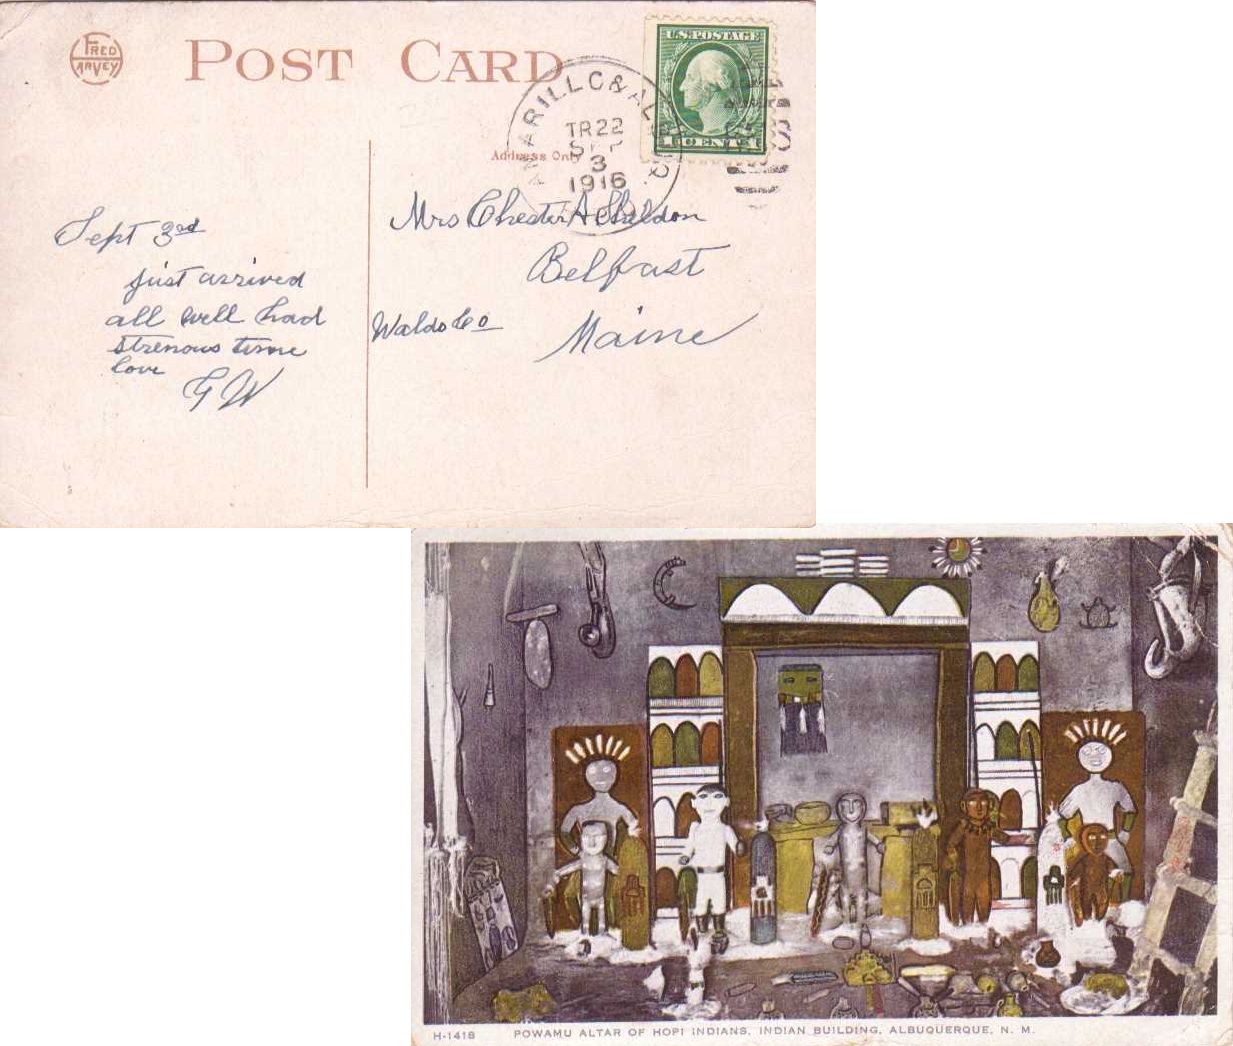 FRED
HARVEY
POST CARD
U.S. POSTAGE
1 CENT 1
TR 22
3
1916
Address Only
Mrs Chester A Sheldon
Belfast
Waldo Co
Maine
Sept 3rd
just arrived
all well had
strenous time
love
G W
H-1418
POWAMU ALTAR OF HOPI INDIANS, INDIAN BUILDING, ALBUQUERQUE, N. M.